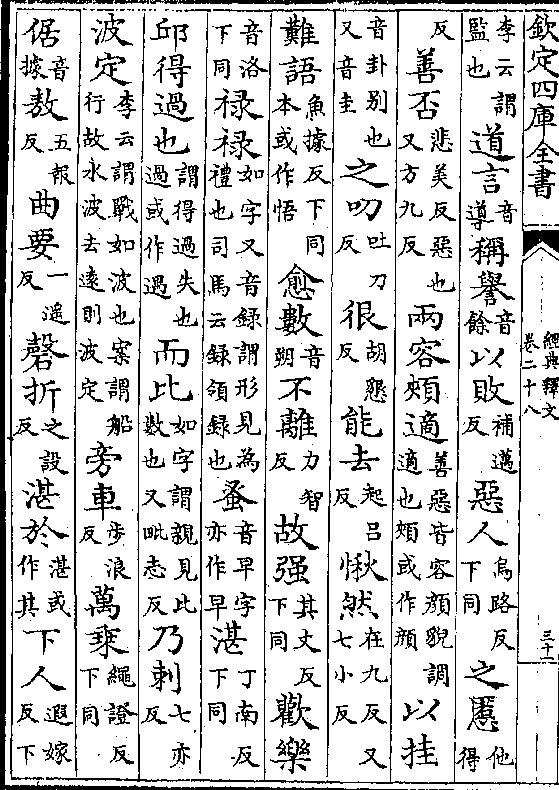 欽定四庫全書
經典釋文
卷二十八
三十
李云謂監也道言音導稱譽音餘以敗補邁反惡人烏路反下同之慝他得
反善否悲美反惡也又方九反兩容頰適善惡皆容顔貌調適也頰或作顔以挂
音卦别也又音圭之叨吐刀反很胡懇反能去起吕反愀然在九反又七小反
難語魚據反下同本或作悟愈數音朔不離力智反故强其丈反下同歡樂
音洛下同禄禄如字又音録謂形見為禮也司馬云録領録也蚤音早字亦作早湛丁南反下同
邱得過也謂得過失也過或作過而比如字謂親見比數也又毗志反乃刺七亦反
波定李云謂戰如波也案謂船行故水波去遠則波定旁車步浪反萬乘繩證反下同
倨音據敖五報反曲要一遥反磬折之設反湛於湛或作其下人遐嫁反下